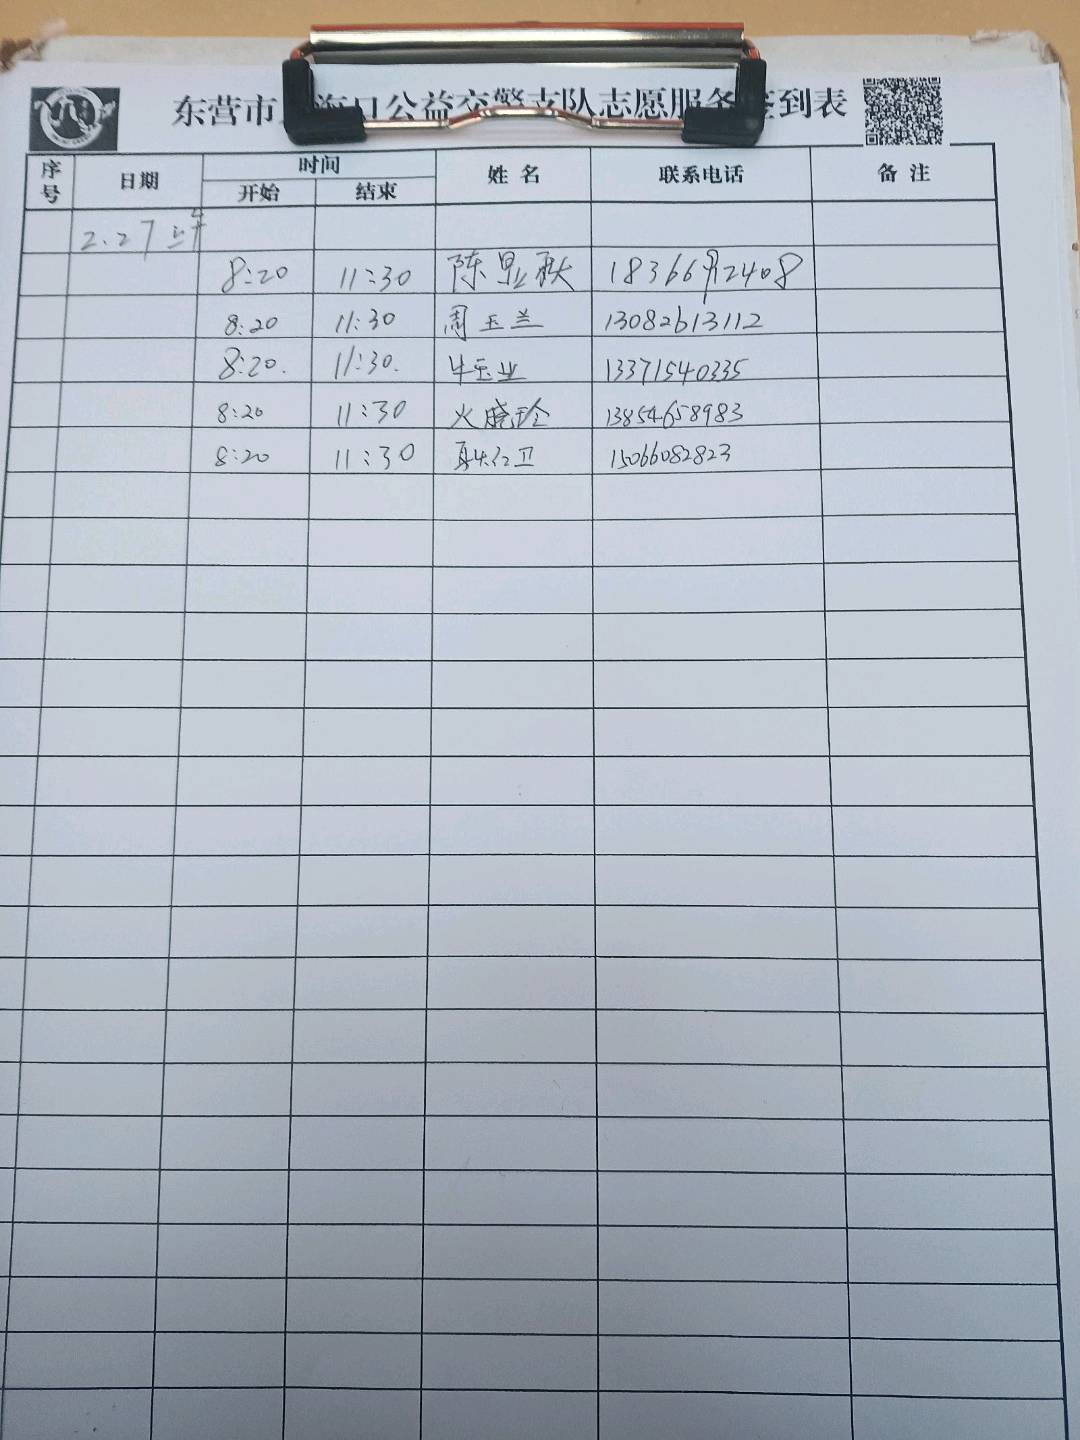 东营市 海口公益交警支队志愿服务签到表
序号 日期 时间 姓名 联系电话 备注
开始 结束
2.27 上午
8:20 11:30 陈显秋 18366992408
8:20 11:30 周玉兰 13082613112
8:20. 11:30. 牛玉业 13371540335
8:20 11:30 火晓玲 13854658983
8:20 11:30 红卫 15066082823